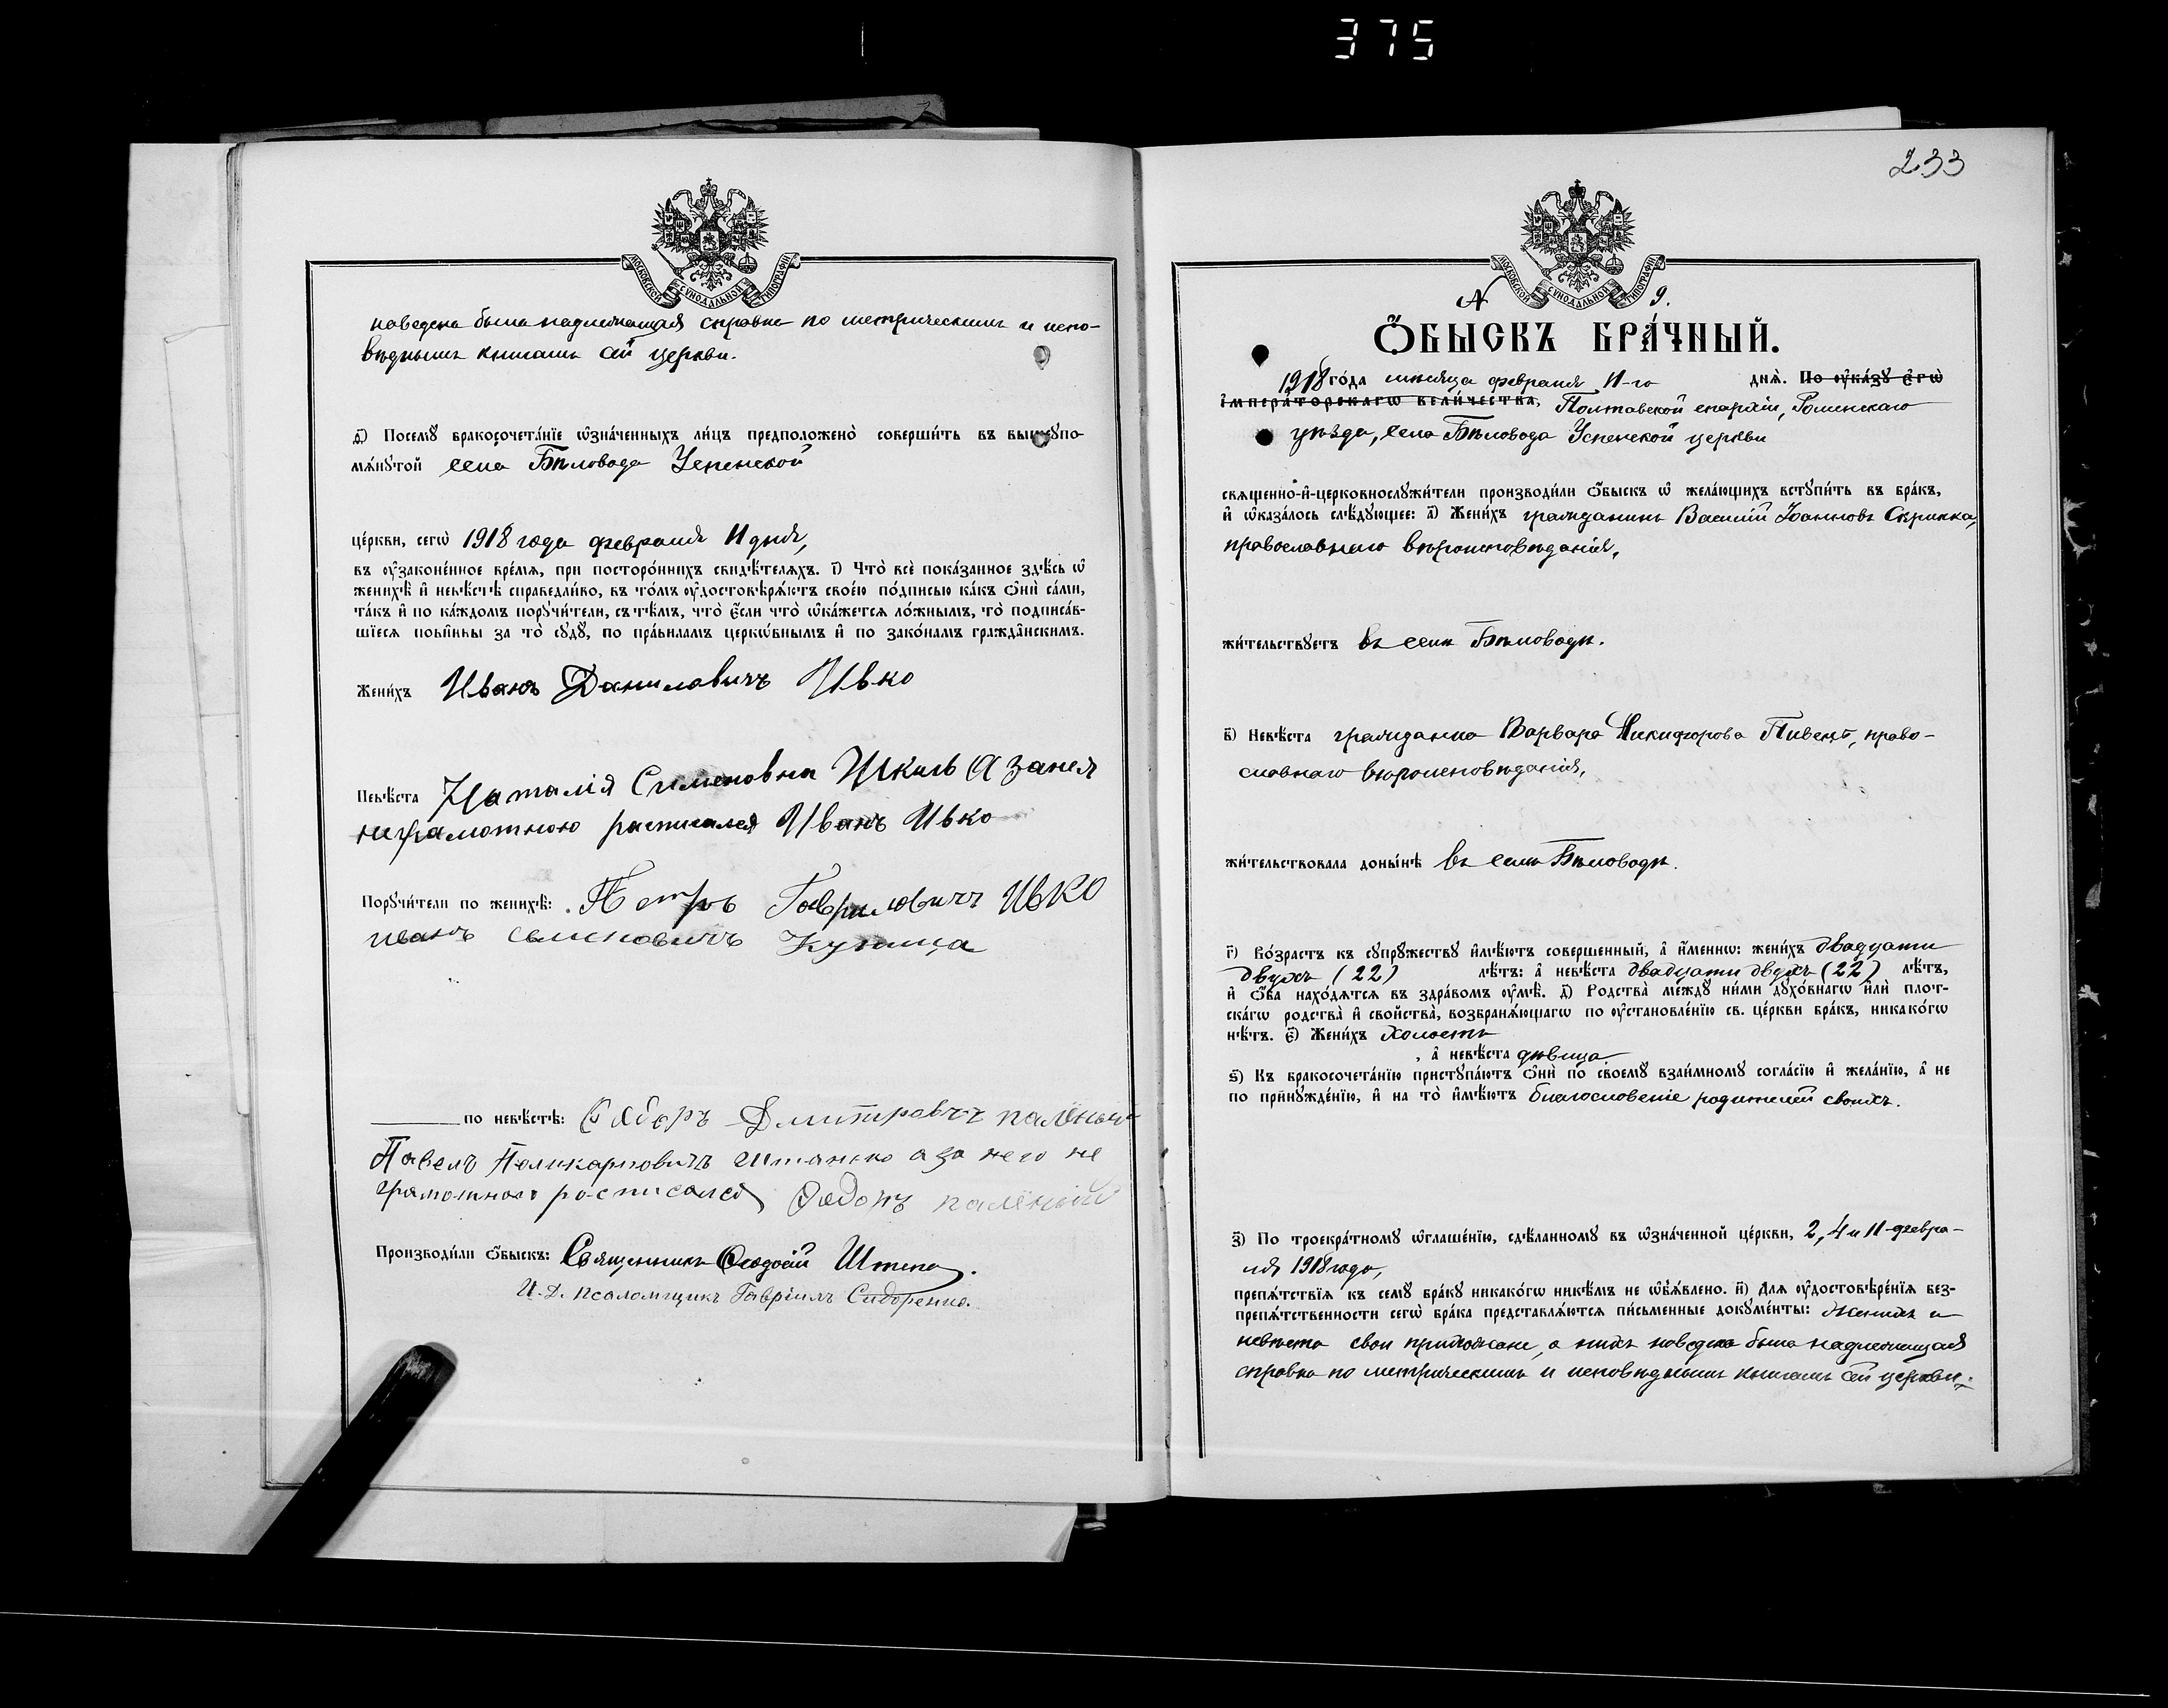 375
МОСКОВСКОЙ СѴНОДАЛЬНОЙ ТИПОГРАФІИ
наведена была надлежащая справка по метрическимъ и испо-
вѣднымъ книгамъ сей церкви.
ѳ҃) Посемꙋ бракосочета́нїе ѡ҆зна́ченныхъ ли́цъ предположено̀ соверши́ть въ вышеꙋпо-
мѧ́нꙋтой села Бѣловода Успенской
це́ркви, сегѡ̀ 1918 года февраля 11 дня,
въ ᲂу҆законе́нное вре́мѧ, при посторо́ннихъ свидѣ́телѧхъ. і҃) Что̀ всѐ пока́занное здѣ́сь ѡ҆
женихѣ̀ и҆ невѣ́стѣ справедли́во, въ то́мъ ᲂу҆достовѣрѧ́ютъ свое́ю по́дписью ка́къ ѻ҆нѝ са́ми,
та́къ и҆ по ка́ждомъ порꙋчи́тели, съ тѣ́мъ, что̀ є҆́сли что̀ ѡ҆ка́жетсѧ ло́жнымъ, то̀ подписа́в-
шїесѧ пови́нны за то̀ сꙋдꙋ̀, по пра́виламъ церкѡ́внымъ и҆ по зако́намъ гражда́нскимъ.
Жени́хъ Иванъ Даниловичъ Ивко
Невѣ́ста Наталія Сименовна Шкиль А занея
неграмотною расписался Иванъ Ивко
Порꙋчи́тели по женихѣ̀: Петръ Гавриловичъ Ивко
иванъ Семеновичъ Куница
по невѣ́стѣ: Ѳедоръ Дмитровичъ палёный
Павелъ Поликарповичъ Штанько а за него не
грамотнаго росписался Ѳедоръ палёный
Производи́ли ѻ҆́быскъ: Священникъ Ѳеодосій Штепа.
И. д. псаломщикъ Гавріилъ Сидоренко.
233
МОСКОВСКОЙ СѴНОДАЛЬНОЙ ТИПОГРАФІИ
№ 9.
Ѻ҆́БЫСКЪ БРА́ЧНЫЙ.
1918 го́да мѣсяца февраля 11-го днѧ̀. По ᲂу҆ка́зꙋ є҆гѡ̀
і҆мпера́торскагѡ вели́чества, Полтавской епархіи, Роменскаго
уѣзда, села Бѣловода Успенской церкви
свѧщенно-и҆-церковнослꙋжи́тели производи́ли ѻ҆́быскъ ѡ҆ жела́ющихъ встꙋпи́ть въ бра́къ,
и҆ ѡ҆каза́лось слѣ́дꙋющее: а҃) Жени́хъ гражданинъ Василій Іоанновъ Скрипка,
православнаго вѣроисповѣданія,
жи́тельствꙋетъ въ селѣ Бѣловодѣ.
в҃) Невѣ́ста гражданка Варвара Никифорова Пивень, право-
славнаго вѣроисповѣданія,
жи́тельствовала доны́нѣ въ селѣ Бѣловодѣ.
г҃) Во́зрастъ къ сꙋпрꙋ́жествꙋ и҆мѣ́ютъ соверше́нный, а҆ и҆́меннѡ: жени́хъ двадцати
двухъ (22) лѣ́тъ: а҆ невѣ́ста двадцати двухъ (22) лѣ́тъ,
и҆ ѻ҆́ба нахо́дѧтсѧ въ здра́вомъ ᲂу҆мѣ̀. д҃) Родства̀ ме́ждꙋ ни́ми дꙋхо́внагѡ и҆лѝ плот-
ска́гѡ родства̀ и҆ свойства̀, возбранѧ́ющагѡ по ᲂу҆становле́нїю св. це́ркви бра́къ, никако́гѡ
нѣ́тъ. є҃) Жени́хъ холостъ
, а҆ невѣ́ста дѣвица.
ѕ҃) Къ бракосочета́нїю пристꙋпа́ютъ ѻ҆нѝ по своемꙋ̀ взаи́мномꙋ согла́сїю и҆ жела́нїю, а҆ не
по принꙋжде́нїю, и҆ на то̀ и҆мѣ́ютъ благословеніе родителей своихъ.
з҃) По троекра́тномꙋ ѡ҆глаше́нїю, сдѣ́ланномꙋ въ ѡ҆зна́ченной це́ркви, 2, 4 и 11 февра-
ля 1918 года,
препѧ́тствїѧ къ семꙋ̀ бра́кꙋ никако́гѡ никѣ́мъ не ѡ҆б̾ѧ́влено. и҃) Длѧ ᲂу҆достовѣре́нїѧ без-
препѧ́тственности сегѡ̀ бра́ка представлѧ́ютсѧ пи́сьменные докꙋме́нты: Женихъ и
невѣста свои прихожане, о нихъ наведена была надлежащая
справка по метрическимъ и исповѣднымъ книгамъ сей церкви.